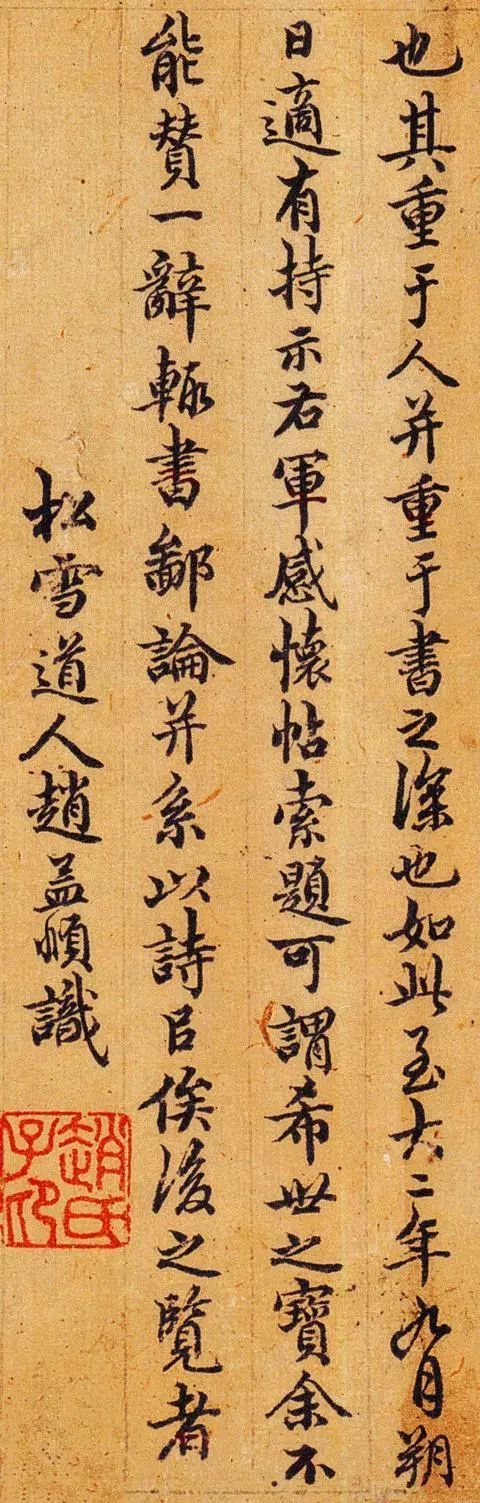 也其重于人并重于书之深也如此至大二年九月朔
日適有持示右軍感懷帖索題可謂希世之寶余不
能贊一辭輒書鄙論并系以詩㠯俟後之覽者
松雪道人趙孟頫識
趙氏子昂